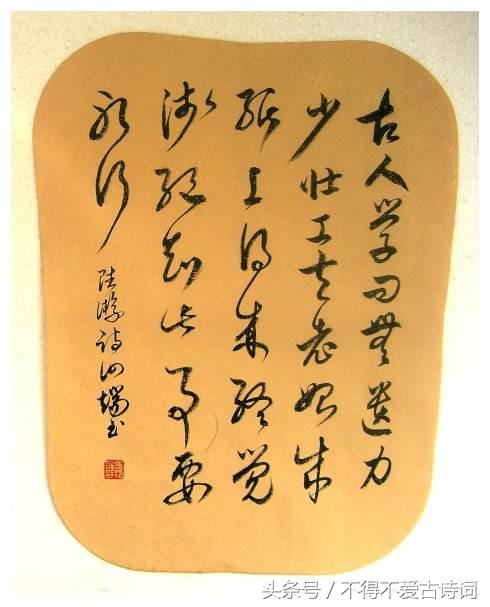 古人学问無遺力
少壮工夫老始成
纸上得来终觉
浅绝知此事要
躬行
陸游诗 瑞书
头条号 / 不得不爱古诗词